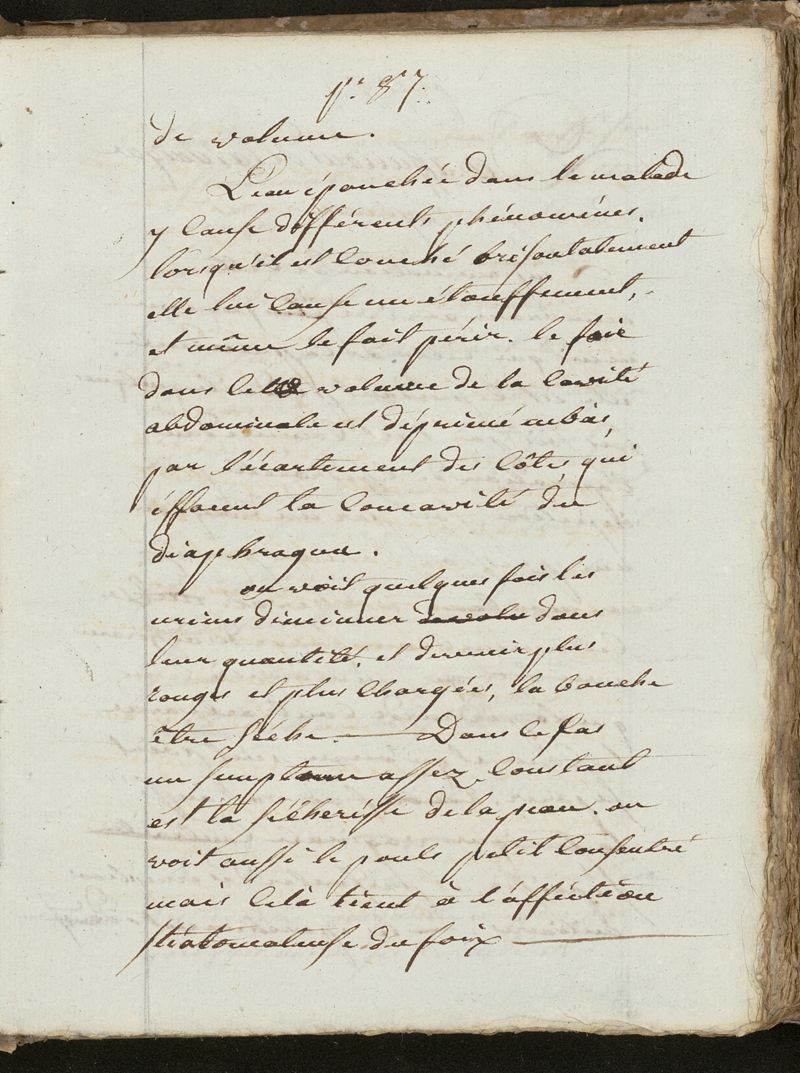 p. 87.
de volume.
L'eau épanchée dans le malade
y cause différents phénomènes.
lorsqu'il est couché orisontalement
elle lui cause un étouffement,
et même le fait périr. le foie
dans le volume de la cavité
abdominale est déprimé en bas,
par l'écartement des côtes qui
effacent la concavité du
diaphragme.
on voit quelques fois les
urines diminuer dans
leur quantité, et devenir plus
rouges et plus chargées, la bouche
être sèche. — Dans ce cas
un simptome assez constant
est la sécheresse de la peau. on
voit aussi le pouls petit consentré
mais celà tient à l'affection
stéatomateuse du foix —